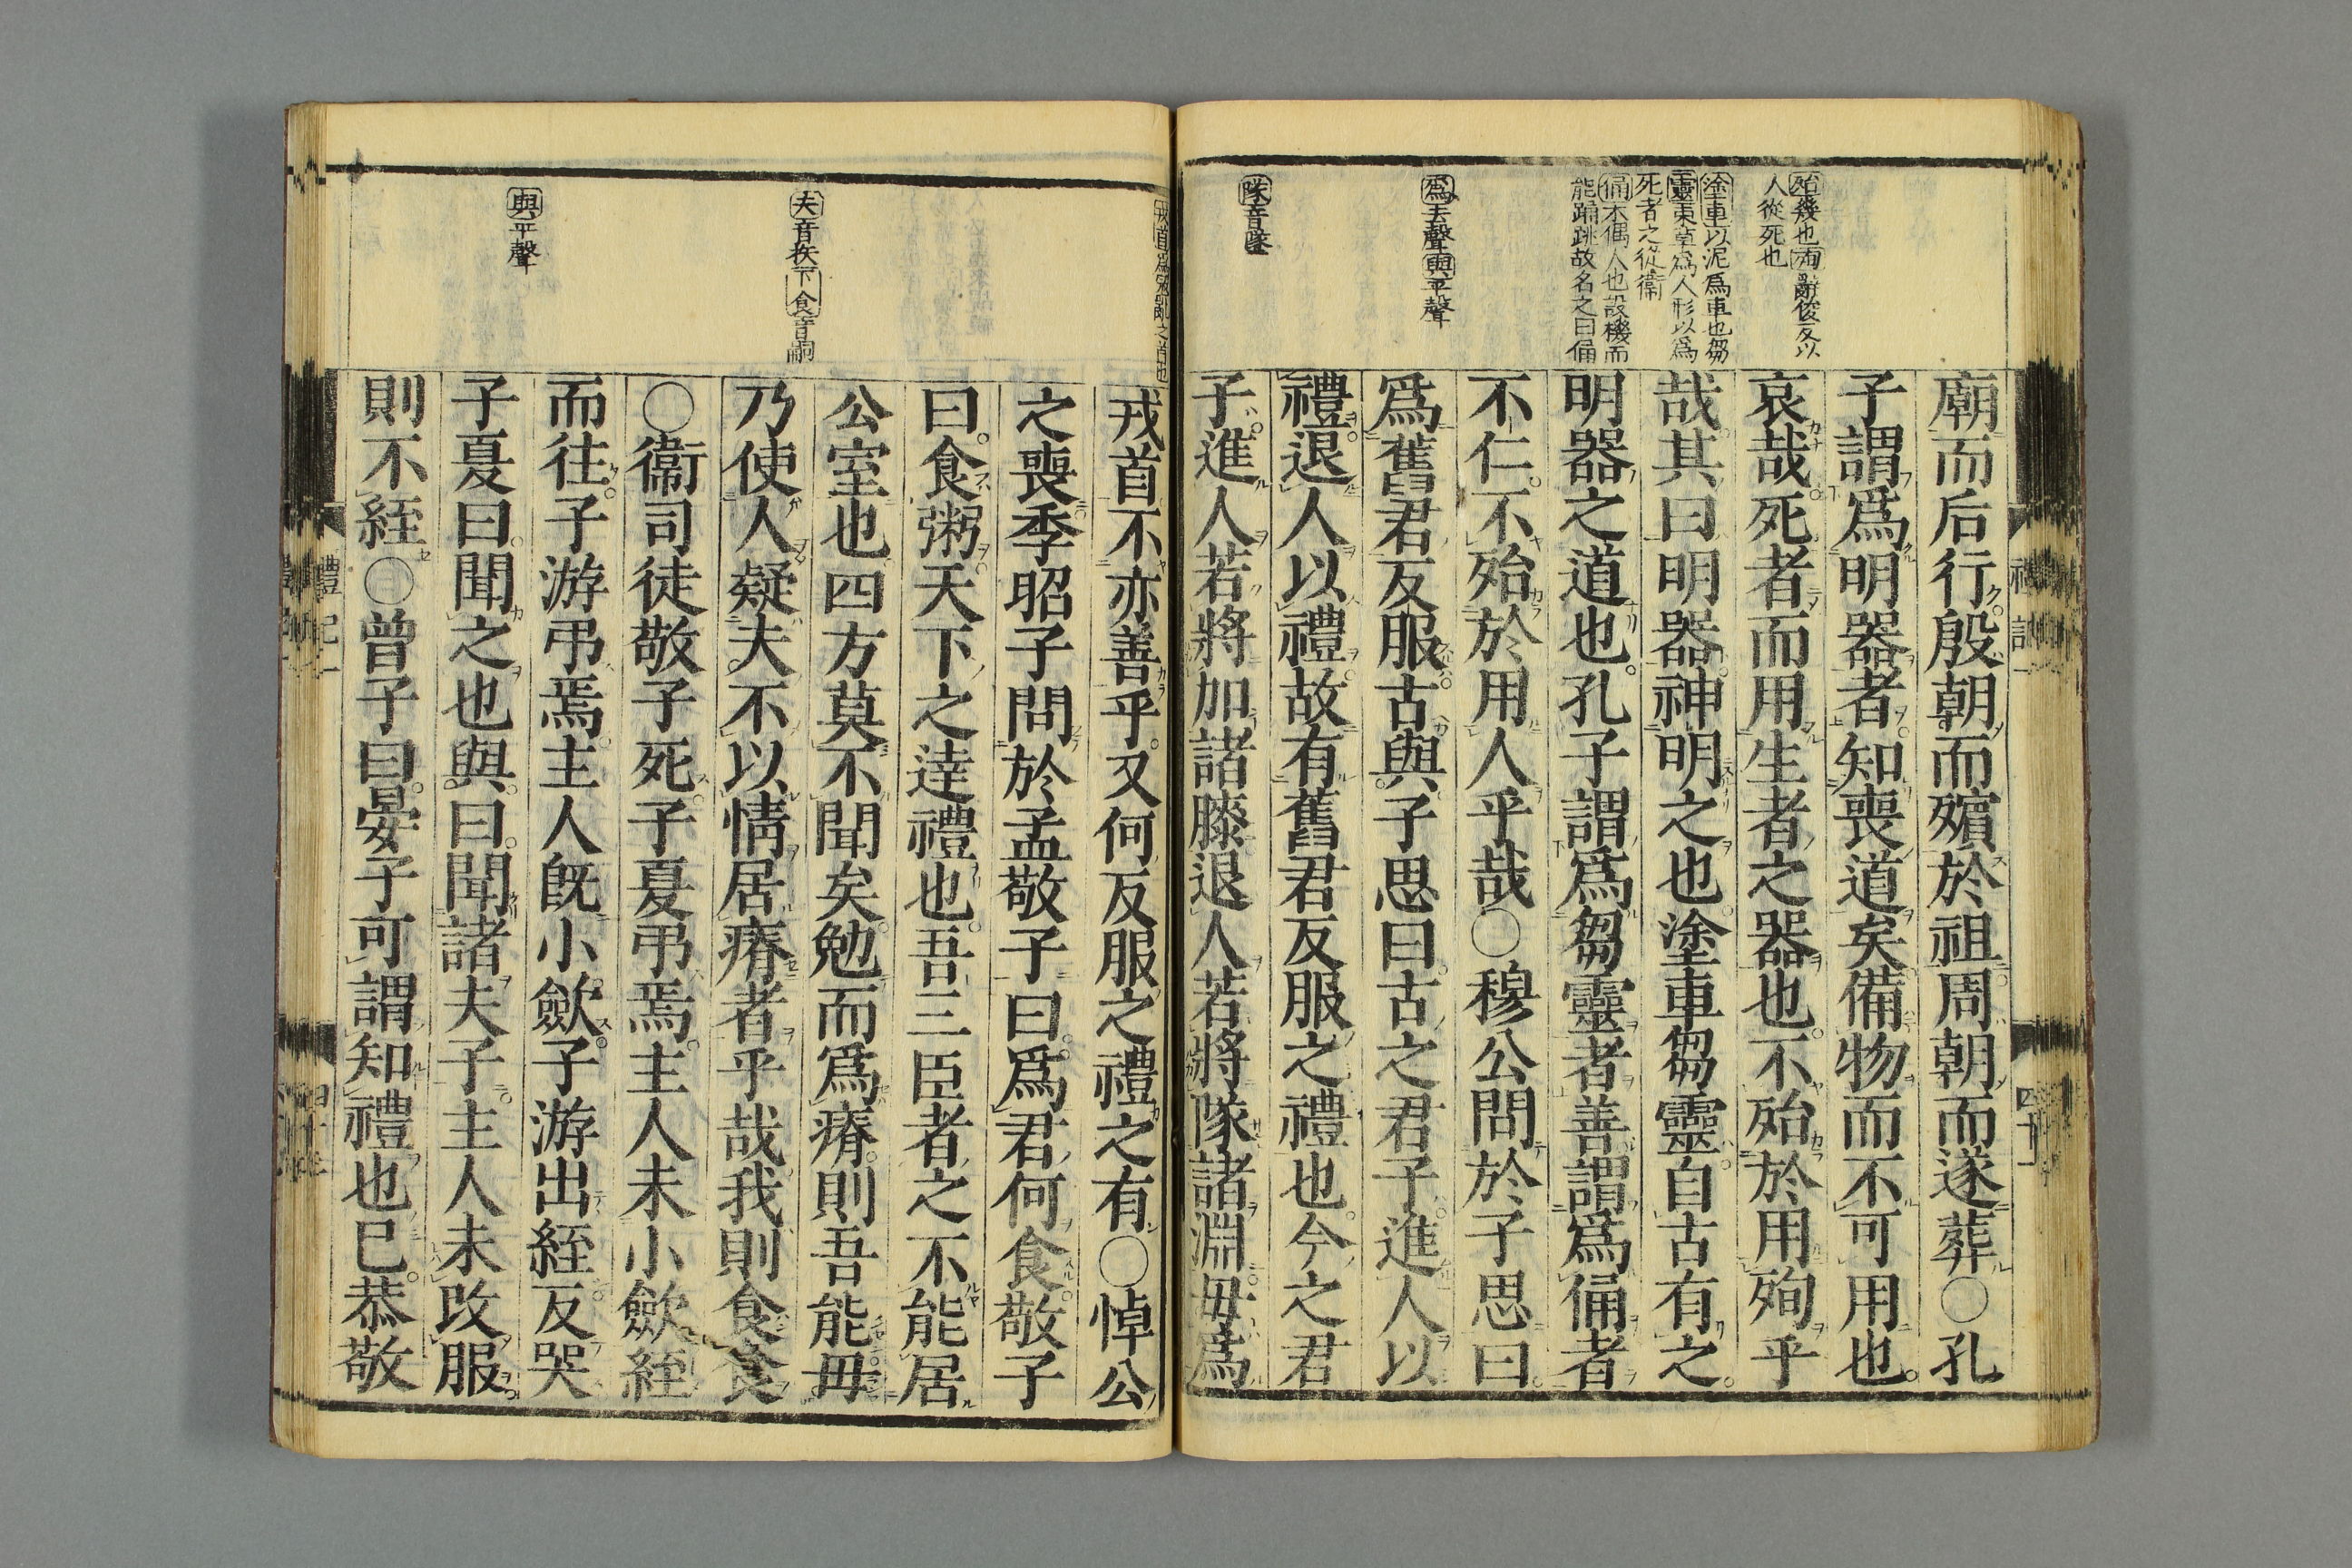 殆幾也殉辭俊反以
人從死也
塗車以泥爲車也芻
靈束草爲人形以爲
死者之從衞
俑木偶人也設機而
能踊跳故名之曰俑
爲去聲與平聲
隊音墜
廟而后行殷朝而殯於祖周朝而遂葬○孔
子謂爲明器者知喪道矣備物而不可用也
哀哉死者而用生者之器也不殆於用殉乎
哉其曰明器神明之也塗車芻靈自古有之
明器之道也孔子謂爲芻靈者善謂爲俑者
不仁不殆於用人乎哉○穆公問於子思曰
爲舊君反服古與子思曰古之君子進人以
禮退人以禮故有舊君反服之禮也今之君
子進人若將加諸膝退人若將隊諸淵毋爲
禮記一
四十一
戎首爲寇亂之首也
夫音扶下食音嗣
與平聲
戎首不亦善乎又何反服之禮之有○悼公
之喪季昭子問於孟敬子曰爲君何食敬子
曰食粥天下之達禮也吾三臣者之不能居
公室也四方莫不聞矣勉而爲瘠則吾能毋
乃使人疑夫不以情居瘠者乎哉我則食食
○衞司徒敬子死子夏弔焉主人未小歛絰
而往子游弔焉主人旣小歛子游出絰反哭
子夏曰聞之也與曰聞諸夫子主人未改服
則不絰○曾子曰晏子可謂知禮也已恭敬
禮記一